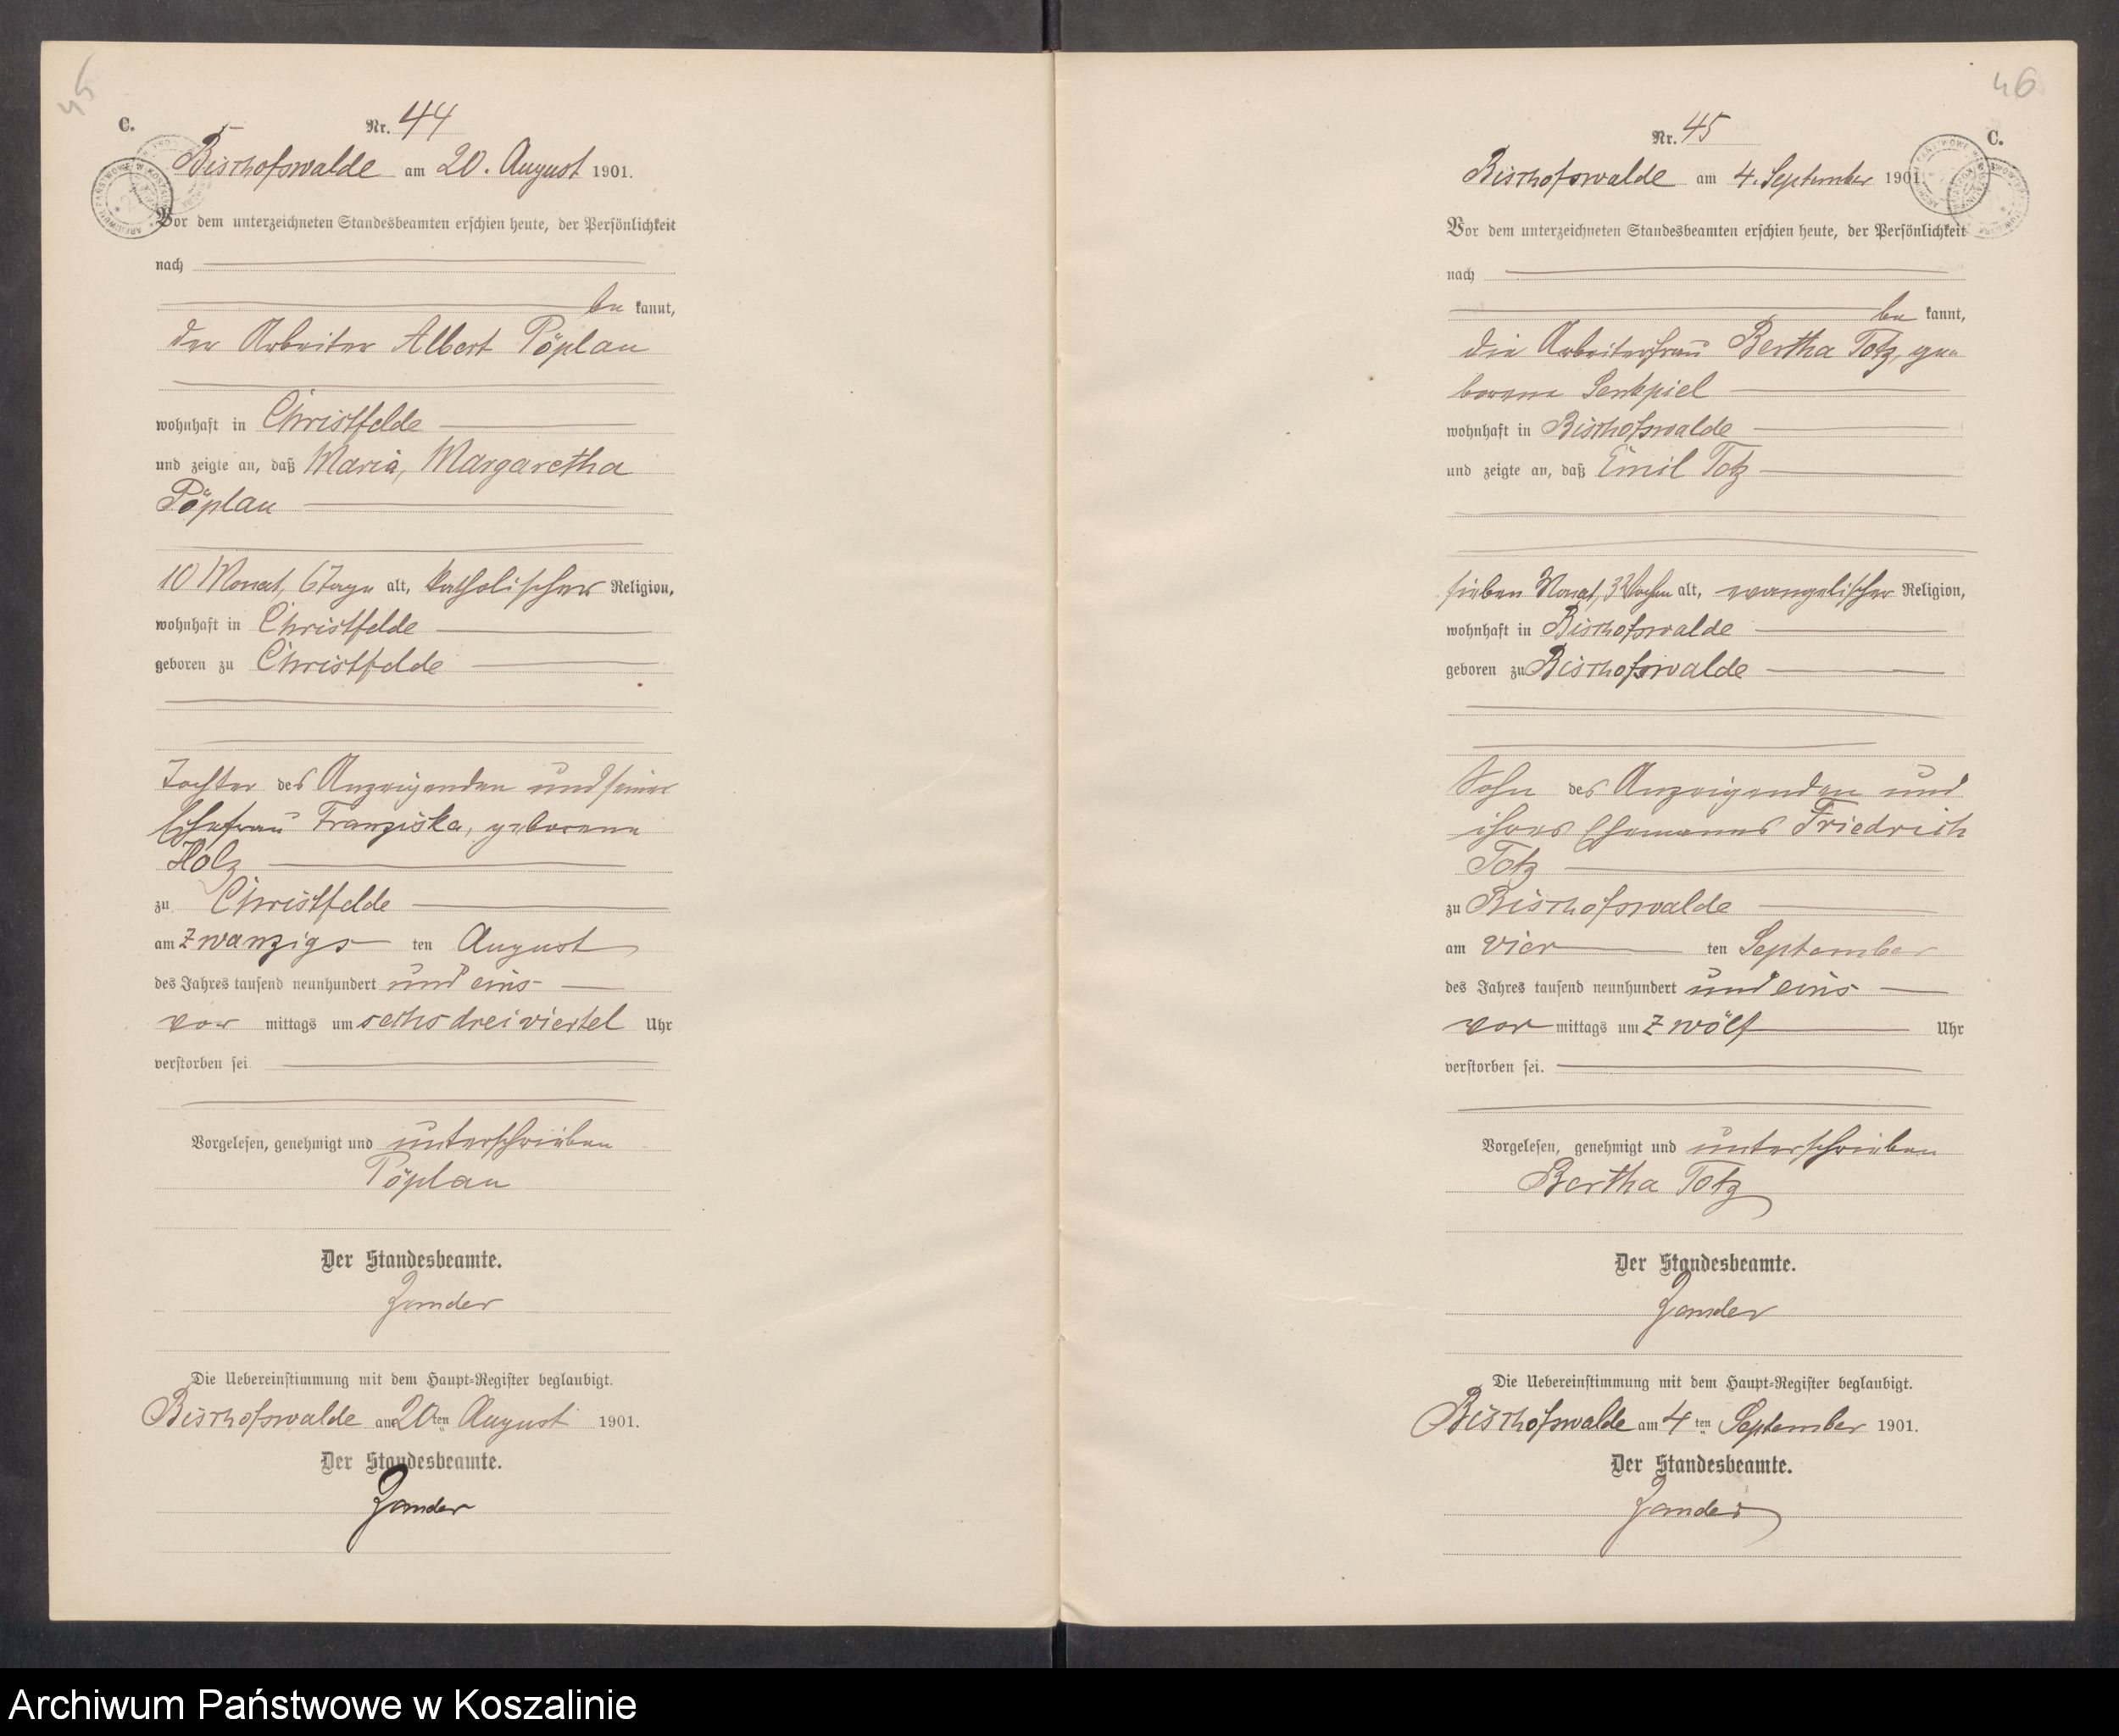 45
C.
Nr. 44
Bischofswalde am 20. August 1901.
Vor dem unterzeichneten Standesbeamten erschien heute, der Persönlichkeit
nach
be kannt,
der Arbeiter Albert Pöplau
wohnhaft in Christfelde
und zeigte an, daß Maria, Margaretha
Pöplau
10 Monat, 6 Tage alt, katholischer Religion,
wohnhaft in Christfelde
geboren zu Christfelde
Tochter des Anzeigenden und seiner
Ehefrau Franziska, geborene
Holz
zu Christfelde
am zwanzigs ten August
des Jahres tausend neunhundert und eins
vor mittags um sechs drei viertel Uhr
verstorben sei
Vorgelesen, genehmigt und unterschrieben
Pöplau
Der Standesbeamte.
Zander
Die Uebereinstimmung mit dem Haupt-Register beglaubigt.
Bischofswalde am 20 ten August 1901.
Der Standesbeamte.
Zander
46
C.
Nr. 45
Bischofswalde am 4. September 1901.
Vor dem unterzeichneten Standesbeamten erschien heute, der Persönlichkeit
nach
be kannt,
die Arbeiterfrau Bertha Totz, ge=
borene Senkpiel
wohnhaft in Bischofswalde
und zeigte an, daß Emil Totz
sieben Monat, 3 Wochen alt, evangelischer Religion,
wohnhaft in Bischofswalde
geboren zu Bischofswalde
Sohn des Anzeigenden und
ihres Ehemannes Friedrich
Totz
zu Bischofswalde
am vier ten September
des Jahres tausend neunhundert und eins
vor mittags um zwölf Uhr
verstorben sei.
Vorgelesen, genehmigt und unterschrieben
Bertha Totz
Der Standesbeamte.
Zander
Die Uebereinstimmung mit dem Haupt-Register beglaubigt.
Bischofswalde am 4 ten September 1901.
Der Standesbeamte.
Zander
Archiwum Państwowe w Koszalinie